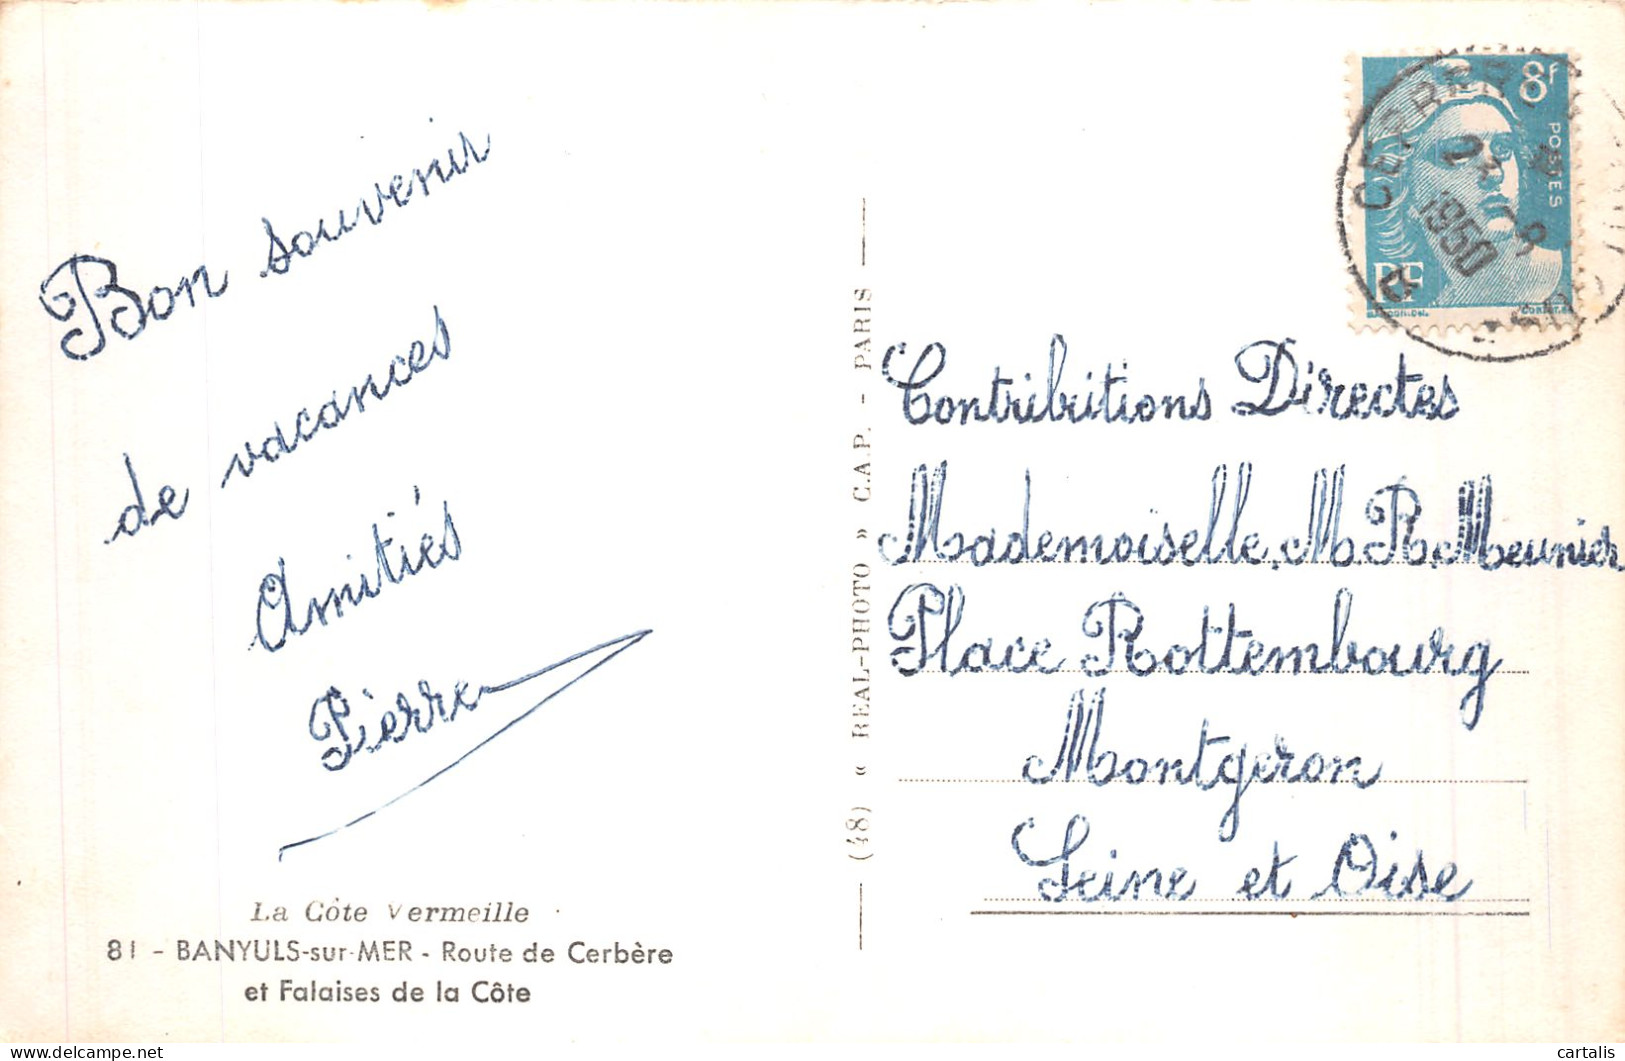 Bon souvenir
de vacances
Amitiés
Pierre
La Côte Vermeille
81 - BANYULS-sur-MER - Route de Cerbère
et Falaises de la Côte
(48) « REAL-PHOTO » C.A.P. - PARIS
8f
POSTES
RF
CERBERE
1950
Contributions Directes
Mademoiselle M.R. Meunier
Place Rottembourg
Montgeron
Seine et Oise
cartalis